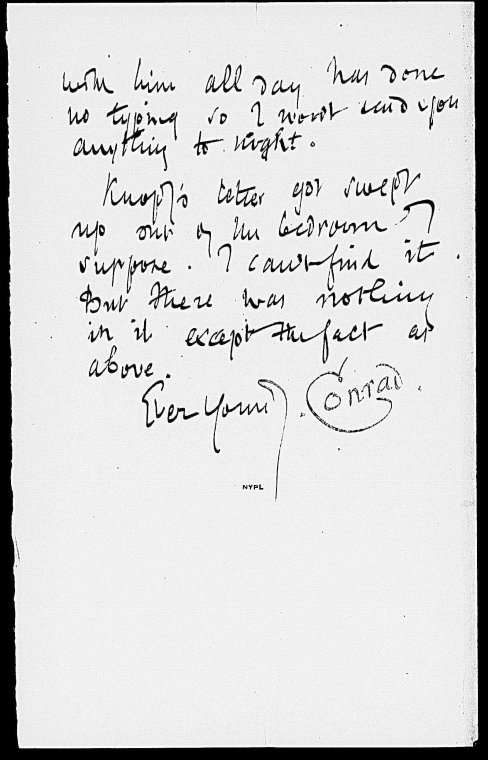 with him all day has done
no typing so I wont send you
anything to night.
Knopf's letter got swept
up out of the bedroom I
suppose. I can't find it.
But there was nothing
in it except the fact as
above.
Ever Yours. Conrad.
NYPL